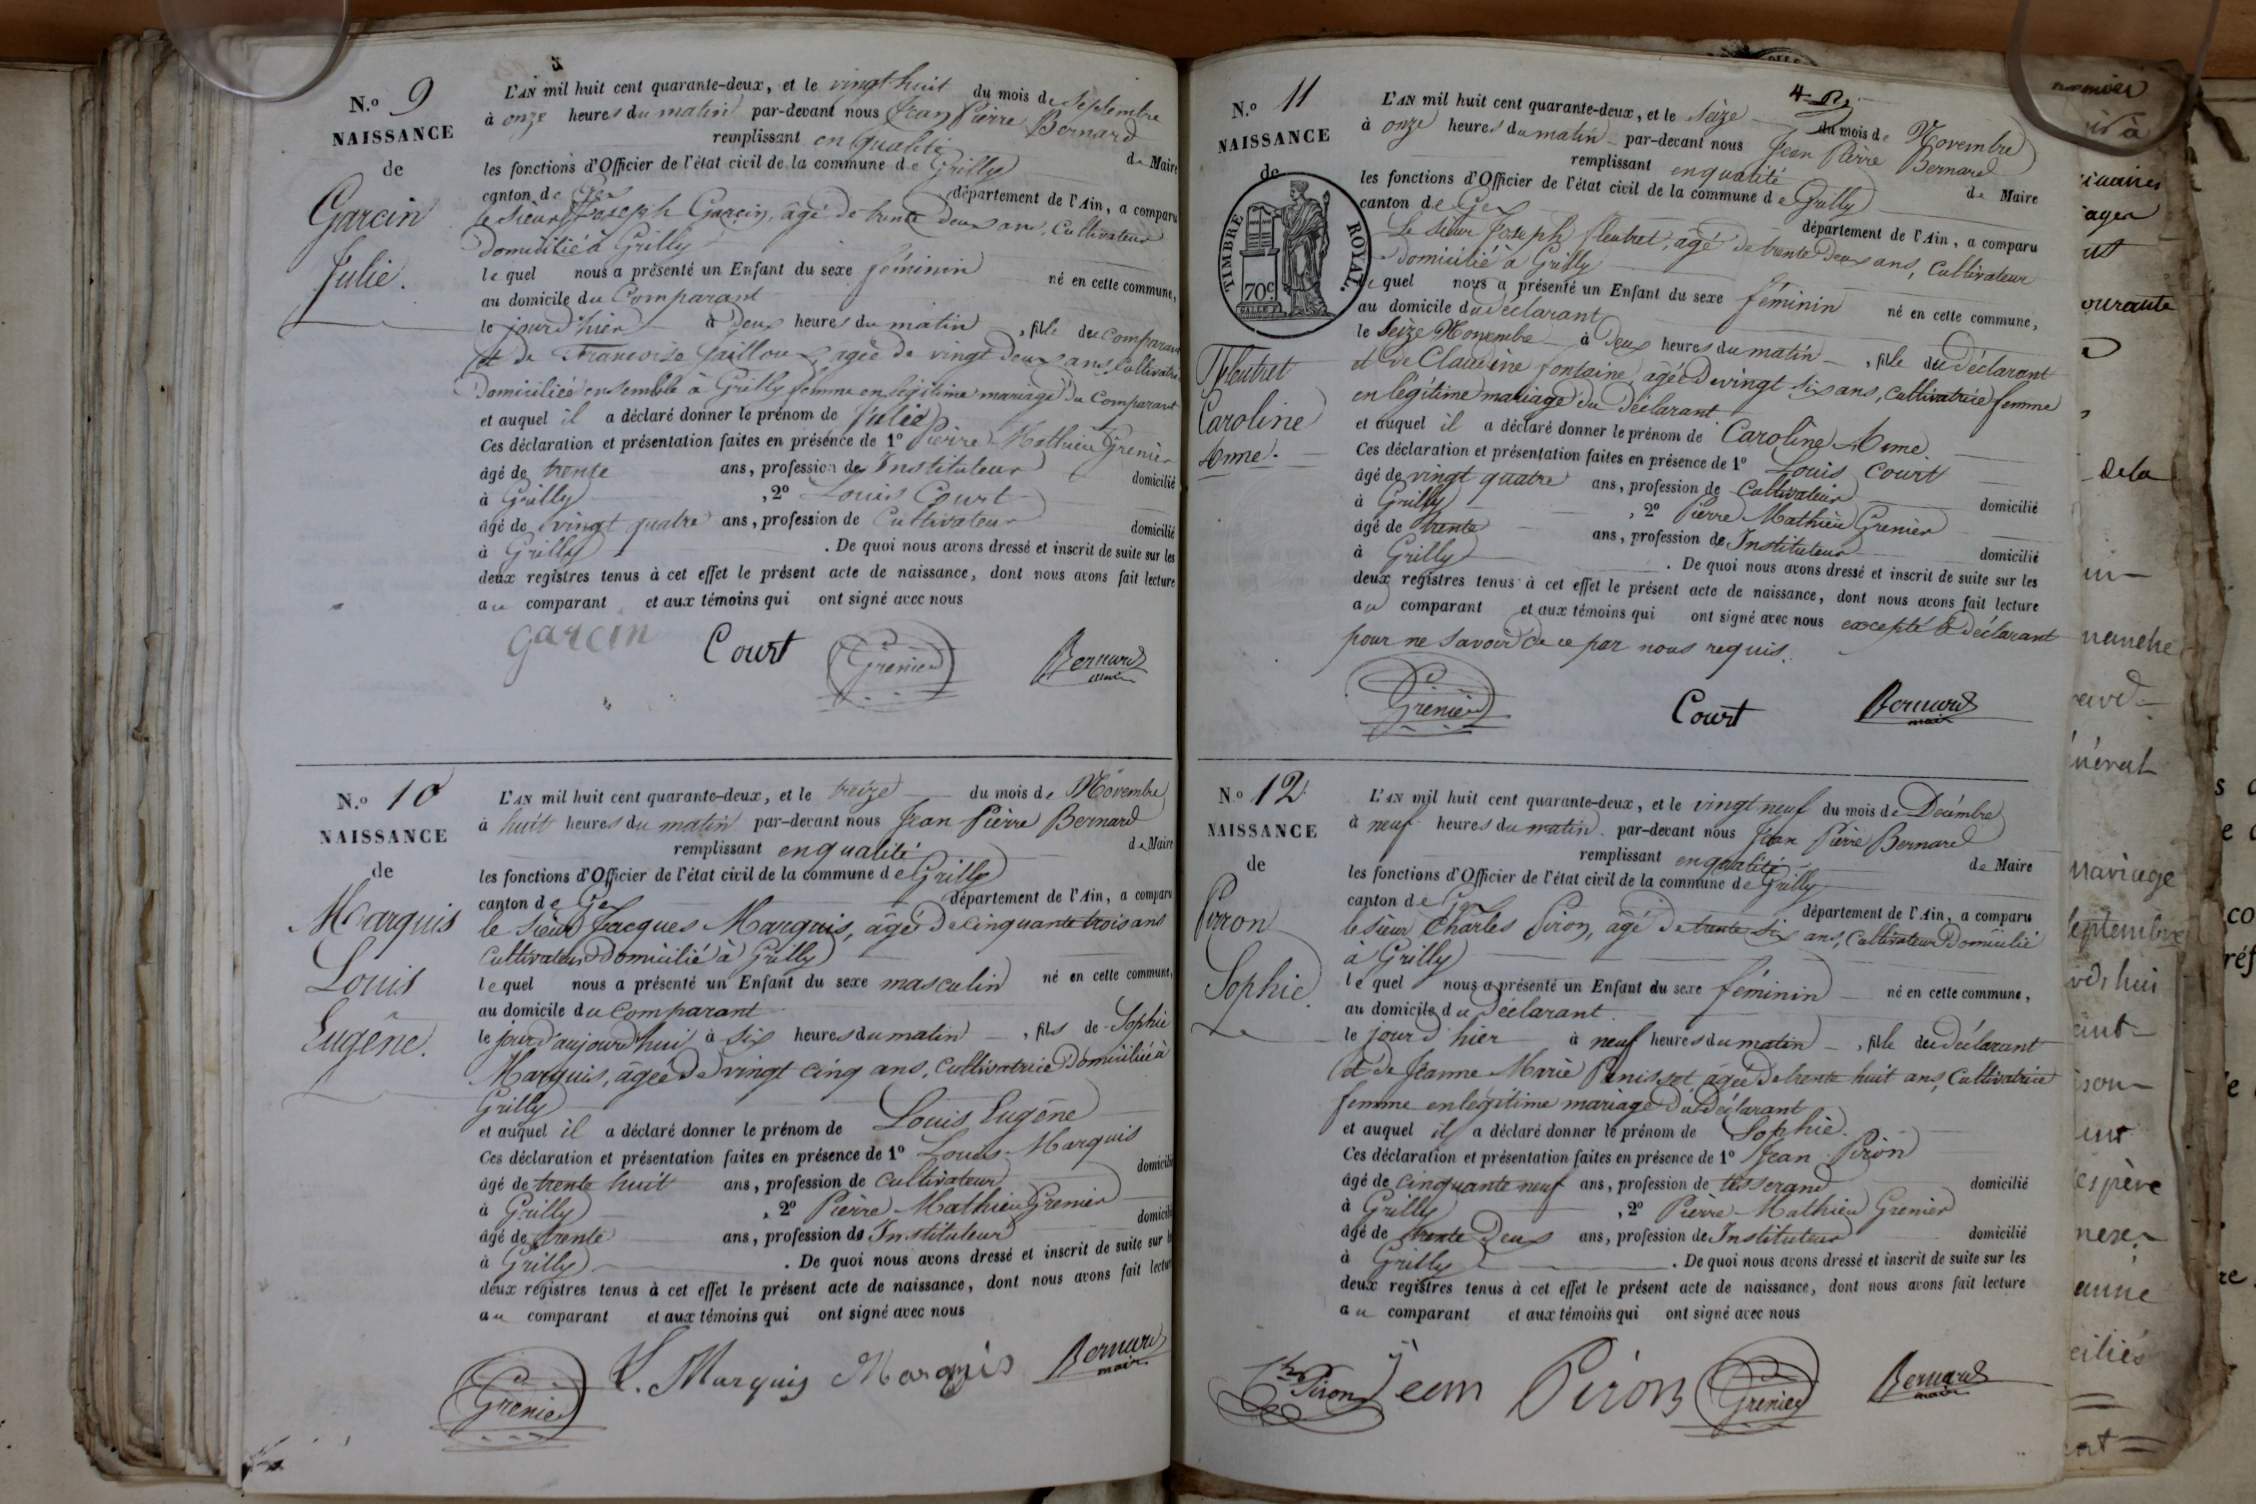 N.o 9
NAISSANCE
de
Garcin
Julie.
L'AN mil huit cent quarante-deux, et le vingt huit du mois de Septembre
à onze heures du matin par-devant nous Jean Pierre Bernard
remplissant en qualité de Maire
les fonctions d'Officier de l'état civil de la commune de Grilly
canton de Gex département de l'Ain, a comparu
le sieur Joseph Garcin, âgé de trente deux ans, Cultivateur
Domicilié à Grilly
lequel nous a présenté un Enfant du sexe féminin né en cette commune,
au domicile du Comparant
le jour d'hier à Deux heures du matin, fille du comparant
et de Francoise Gaillou agée de vingt deux ans, Cultivatrice
Domiciliée ensemble à Grilly femme en légitime mariage du Comparant
et auquel il a déclaré donner le prénom de Julie
Ces déclaration et présentation faites en présence de 1o Pierre Mathieu Grenier
âgé de trente ans, profession de Instituteur domicilié
à Grilly, 2o Louis Court
âgé de vingt quatre ans, profession de Cultivateur domicilié
à Grilly . De quoi nous avons dressé et inscrit de suite sur les
deux registres tenus à cet effet le présent acte de naissance, dont nous avons fait lecture
au comparant et aux témoins qui ont signé avec nous
garcin Court Grenier Bernard
maire
N.o 10
NAISSANCE
de
Marquis
Louis
Eugène.
L'AN mil huit cent quarante-deux, et le treize du mois de Novembre
à huit heures du matin par-devant nous Jean Pierre Bernard
remplissant en qualité de Maire
les fonctions d'Officier de l'état civil de la commune de Grilly
canton de Gex département de l'Ain, a comparu
le sieur Jacques Marquis, âgé de cinquante trois ans
Cultivateur Domicilié à Grilly
lequel nous a présenté un Enfant du sexe masculin né en cette commune,
au domicile du Comparant
le jour d'aujourd'hui à six heures du matin, fils de Sophie
Marquis, agée de vingt cinq ans, Cultivatrice Domiciliée à
Grilly
et auquel il a déclaré donner le prénom de Louis Eugène
Ces déclaration et présentation faites en présence de 1o Louis Marquis
âgé de trente huit ans, profession de cultivateur domicilié
à Grilly, 2o Pierre Mathieu Grenier
âgé de trente ans, profession de Instituteur domicilié
à Grilly . De quoi nous avons dressé et inscrit de suite sur les
deux registres tenus à cet effet le présent acte de naissance, dont nous avons fait lecture
au comparant et aux témoins qui ont signé avec nous
Grenier L. Marquis Marquis Bernard
maire
N.o 11
NAISSANCE
de
TIMBRE ROYAL.
70c
Fleutret
Caroline
Anne.
L'AN mil huit cent quarante-deux, et le Seize du mois de Novembre
à onze heures du matin par-devant nous Jean Pierre Bernard
remplissant en qualité de Maire
les fonctions d'Officier de l'état civil de la commune de Grilly
canton de Gex département de l'Ain, a comparu
Le sieur Joseph fleutret, âgé de trente Deux ans, Cultivateur
Domicilié à Grilly
lequel nous a présenté un Enfant du sexe féminin né en cette commune,
au domicile du déclarant
le Seize Novembre à Deux heures du matin, fille du Déclarant
et de Claudine fontaine, agée de vingt six ans, cultivatrice femme
en légitime mariage du Déclarant
et auquel il a déclaré donner le prénom de Caroline Anne
Ces déclaration et présentation faites en présence de 1o Louis Court
âgé de vingt quatre ans, profession de Cultivateur domicilié
à Grilly, 2o Pierre Mathieu Grenier
âgé de trente ans, profession de Instituteur domicilié
à Grilly . De quoi nous avons dressé et inscrit de suite sur les
deux registres tenus à cet effet le présent acte de naissance, dont nous avons fait lecture
au comparant et aux témoins qui ont signé avec nous excepté le déclarant
pour ne savoir de ce par nous requis.
Grenier Court Bernard
maire
N.o 12
NAISSANCE
de
Pirron
Sophie.
L'AN mil huit cent quarante-deux, et le vingt neuf du mois de Décembre
à neuf heures du matin par-devant nous Jean Pierre Bernard
remplissant en qualité de Maire
les fonctions d'Officier de l'état civil de la commune de Grilly
canton de Gex département de l'Ain, a comparu
le sieur Charles Piron, âgé de trente six ans, Cultivateur Domicilié
à Grilly
lequel nous a présenté un Enfant du sexe féminin né en cette commune,
au domicile du Déclarant
le jour d'hier à neuf heures du matin, fille du déclarant
et de Jeanne Marie Panisset agée de trente huit ans, Cultivatrice
femme en légitime mariage du Déclarant
et auquel il a déclaré donner le prénom de Sophie.
Ces déclaration et présentation faites en présence de 1o Jean Piron
âgé de cinquante neuf ans, profession de tisserand domicilié
à Grilly, 2o Pierre Mathieu Grenier
âgé de trente Deux ans, profession de Instituteur domicilié
à Grilly . De quoi nous avons dressé et inscrit de suite sur les
deux registres tenus à cet effet le présent acte de naissance, dont nous avons fait lecture
au comparant et aux témoins qui ont signé avec nous
Piron Jean Piron Grenier Bernard
maire